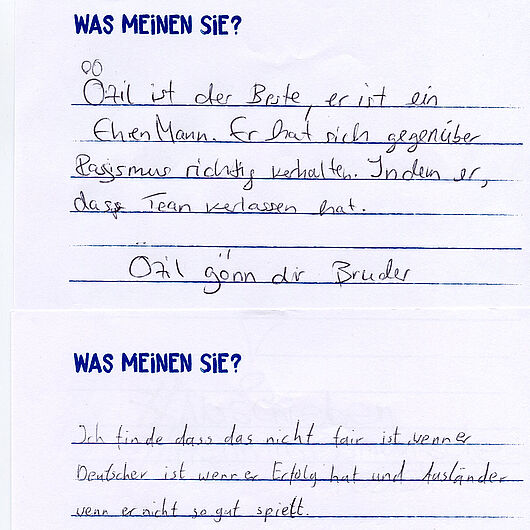 WAS MEINEN SIE?
Özil ist der Beste, er ist ein
EhrenMann. Er hat sich gegenüber
Rasismus richtig verhalten. Indem er,
dass Team verlassen hat.
Özil gönn dir Bruder
WAS MEINEN SIE?
Ich finde dass das nicht fair ist wenn er
Deutscher ist wenn er Erfolg hat und Ausländer
wenn er nicht so gut spielt.